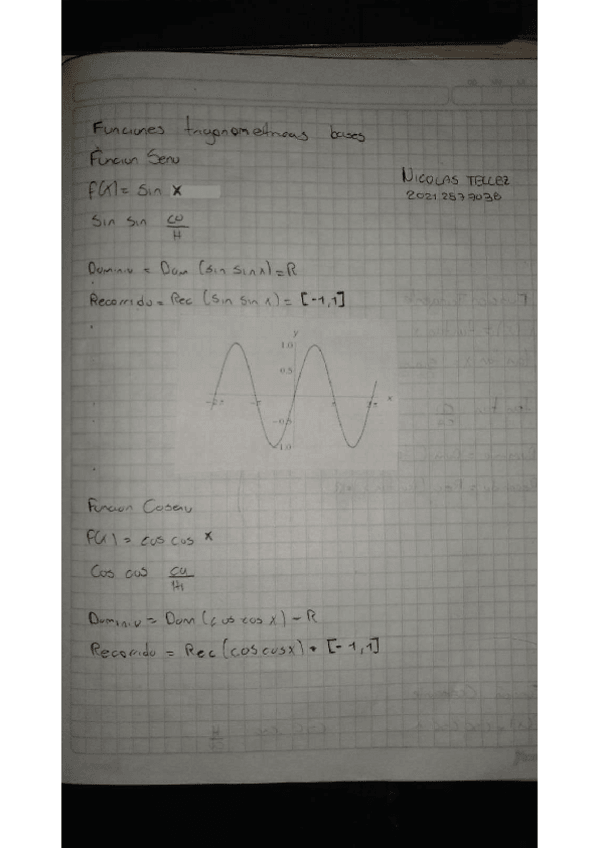 Funciones trigonometricas bases
Función Seno
NICOLAS TELLEZ
F(x) = Sin x
Sin Sin CO/H
Dominio = Dom (sin sin x) = R
Recorrido = Rec (sin sin x) = [-1,1]
y
1.0
0.5
-2π -π π 2π x
-0.5
-1.0
Funcion Coseno
F(x) = cos cos x
Cos cos ca/H
Dominio = Dom (cos cos x) = R
Recorrido = Rec (cos cos x) = [-1,1]